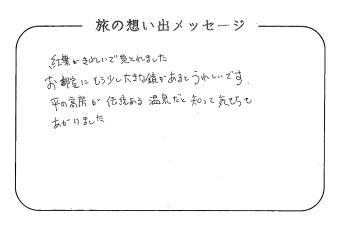 旅の想い出メッセージ
紅葉がきれいで見とれました
お部屋にもう少し大きな鏡があるとうれしいです。
平の高房が伝統ある温泉だと知って気もちも
あがりました